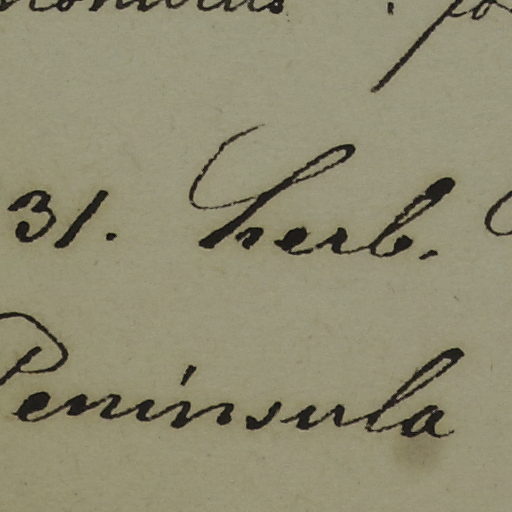 31. herb.
Peninsula